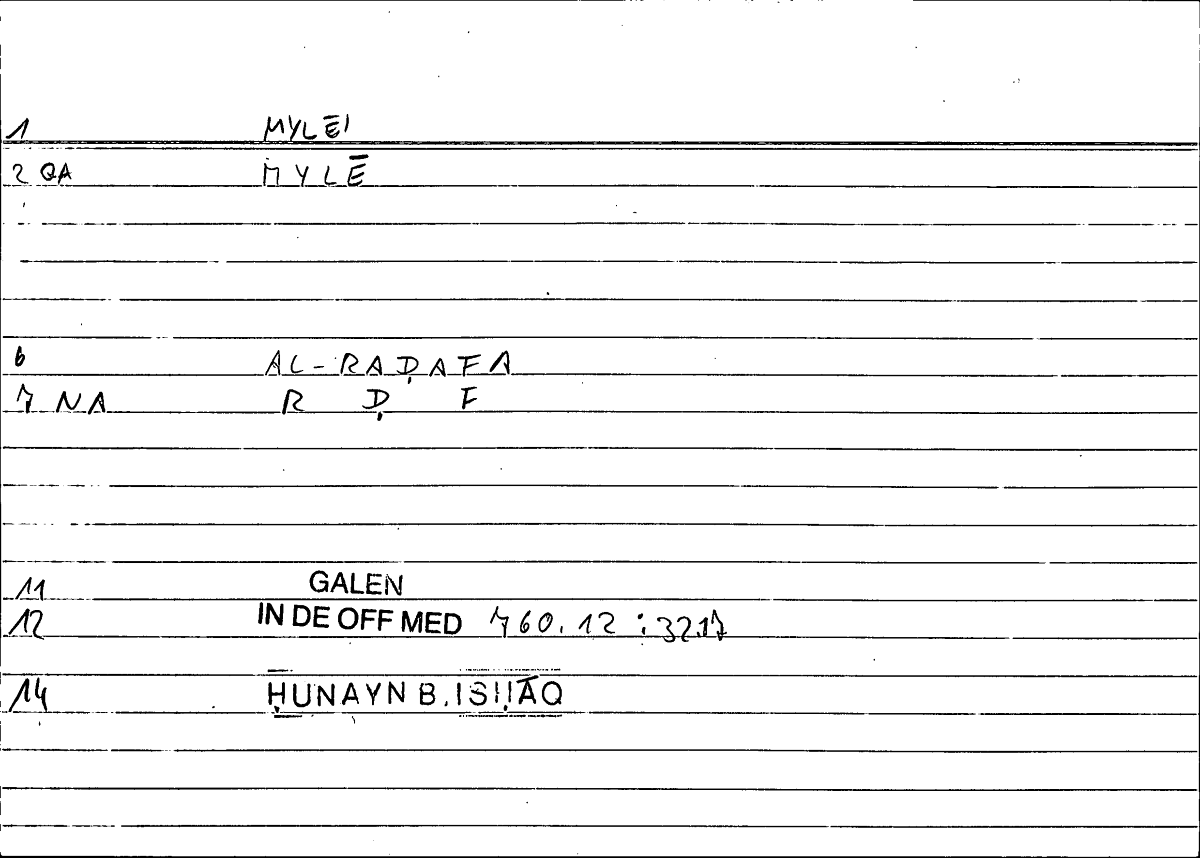 1 MYLĒI
2 QA MYLĒ
6 AL-RAḌAFA
7 NA R Ḍ F
11 GALEN
12 IN DE OFF MED 760.12 : 32.17
14 ḤUNAYN B. ISḤĀQ